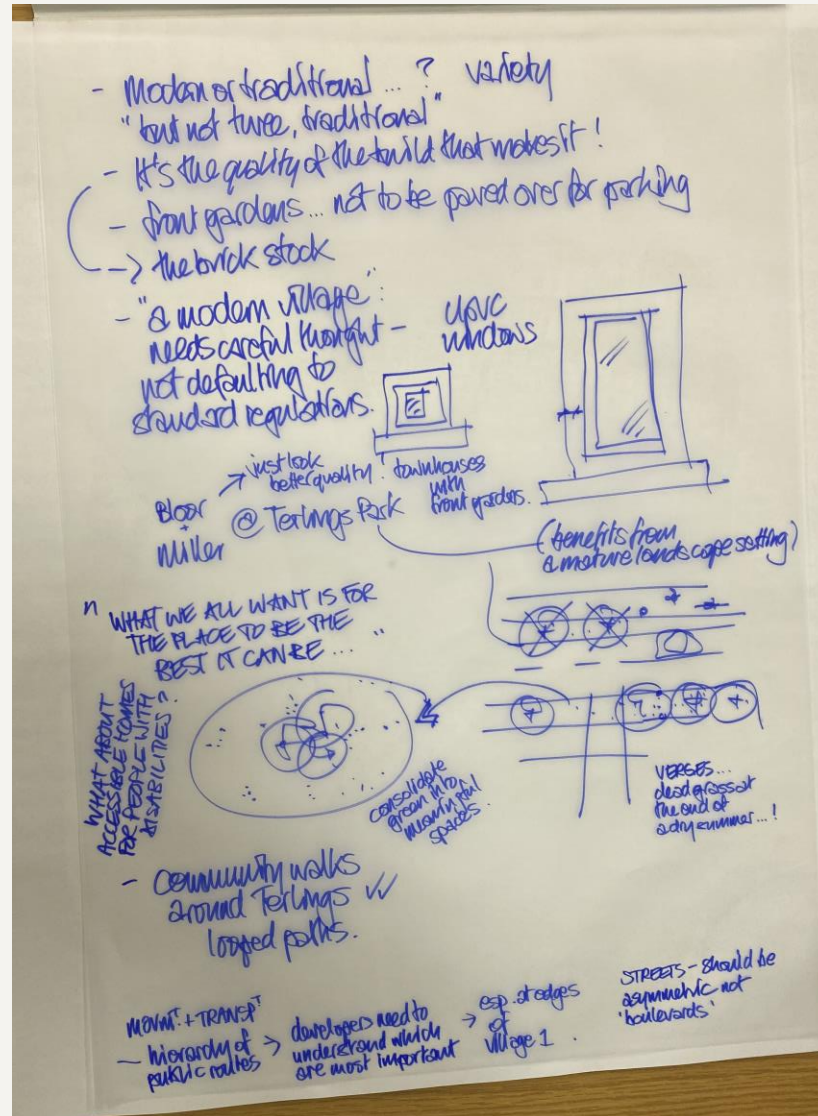 - Modern or traditional ... ? variety
"but not twee, traditional"
- It's the quality of the build that makes it!
- front gardens ... not to be paved over for parking
-> the brick stock
- "a modern village":
needs careful thought -
not defaulting to
standard regulations.
UPVC
windows
just look
better quality!
townhouses
with
front gardens.
Bloor
+
Miller
@ Terlings Park
(benefits from
a mature landscape setting)
" WHAT WE ALL WANT IS FOR
THE PLACE TO BE THE
BEST IT CAN BE ... "
WHAT ABOUT
ACCESSIBLE HOMES
FOR PEOPLE WITH
DISABILITIES?
consolidate
green into
meaningful
spaces.
VERGES...
dead grass at
the end of
a dry summer...!
- Community walks
around Terlings
looped paths.
MOVMT. + TRANSPT
- hierarchy of
public routes
-> developers need to
understand which
are most important
-> esp. at edges
of
village 1.
STREETS - should be
asymmetric not
'boulevards'